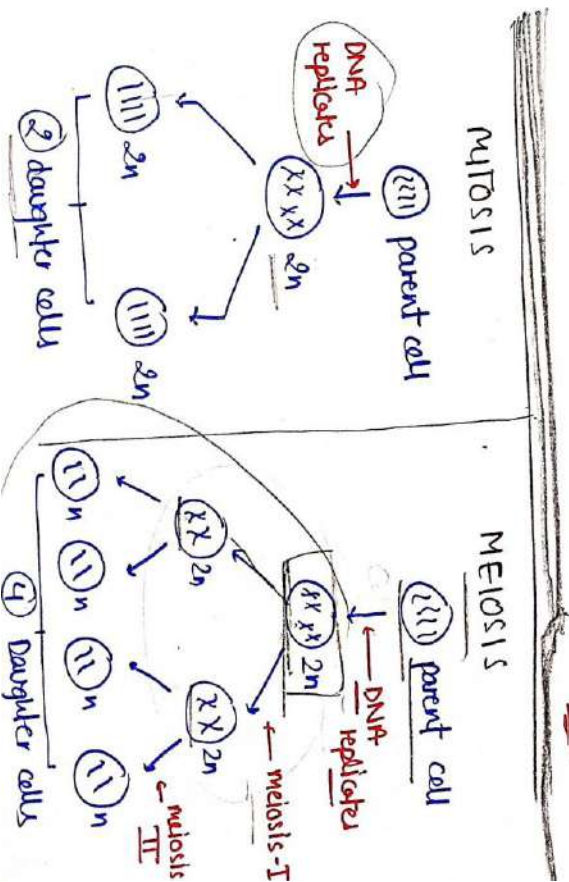 MITOSIS
parent cell
DNA
replicates
2n
2n
2n
2 daughter cells
MEIOSIS
parent cell
DNA
replicates
2n
meiosis-I
2n
2n
meiosis
II
n
n
n
n
4 Daughter cells